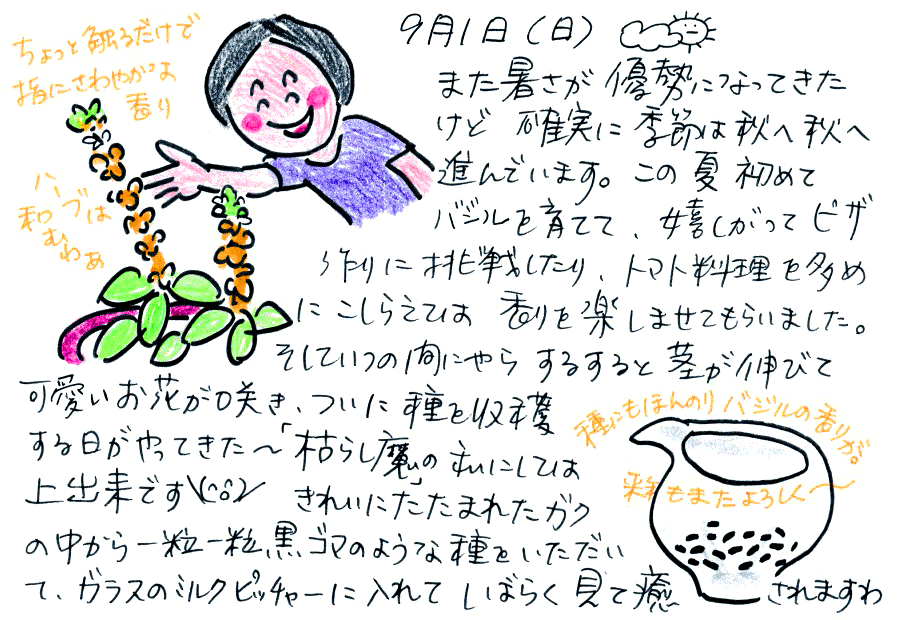 9月1日(日)
また暑さが優勢になってきた
けど 確実に季節は秋へ秋へ
進んでいます。この夏 初めて
バジルを育てて、嬉しがってピザ
作りに挑戦したり、トマト料理を多め
にこしらえては 香りを楽しませてもらいました。
そしていつの間にやら するすると茎が伸びて
可愛いお花が咲き、ついに種を収穫
する日がやってきた〜「枯らし魔」の私にしては
上出来です\(^o^)/ きれいにたたまれたガク
の中から一粒一粒、黒ゴマのような種をいただい
て、ガラスのミルクピッチャーに入れて しばらく見て癒 されますわ
ちょっと触るだけで
指にさわやかな
香り
ハーブは
和むわぁ
種にもほんのりバジルの香りが。
来年もまたよろしく〜